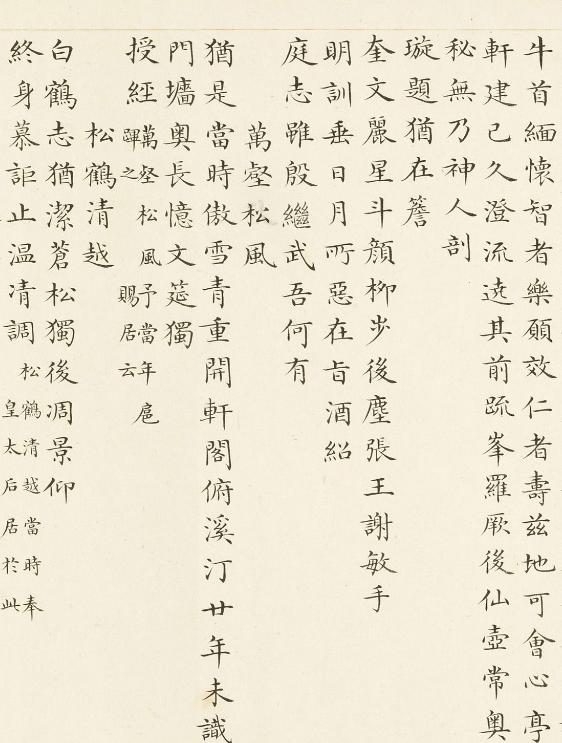 牛首緬懷智者樂願效仁者壽茲地可會心亭
軒建已久澄流遶其前疏峯羅厥後仙壺常奥
秘無乃神人剖
璇題猶在簷
奎文麗星斗顔柳步後塵張王謝敏手
明訓垂日月所惡在旨酒紹
庭志雖殷繼武吾何有
萬壑松風
猶是當時傲雪青重開軒閣俯溪汀廿年未識
門墻奥長憶文筵獨
授經
萬壑松風予當年扈
蹕之賜居云
松鶴清越
白鶴志猶潔蒼松獨後凋景仰
終身慕詎止温凊調
松鶴清越當時奉
皇太后居於此